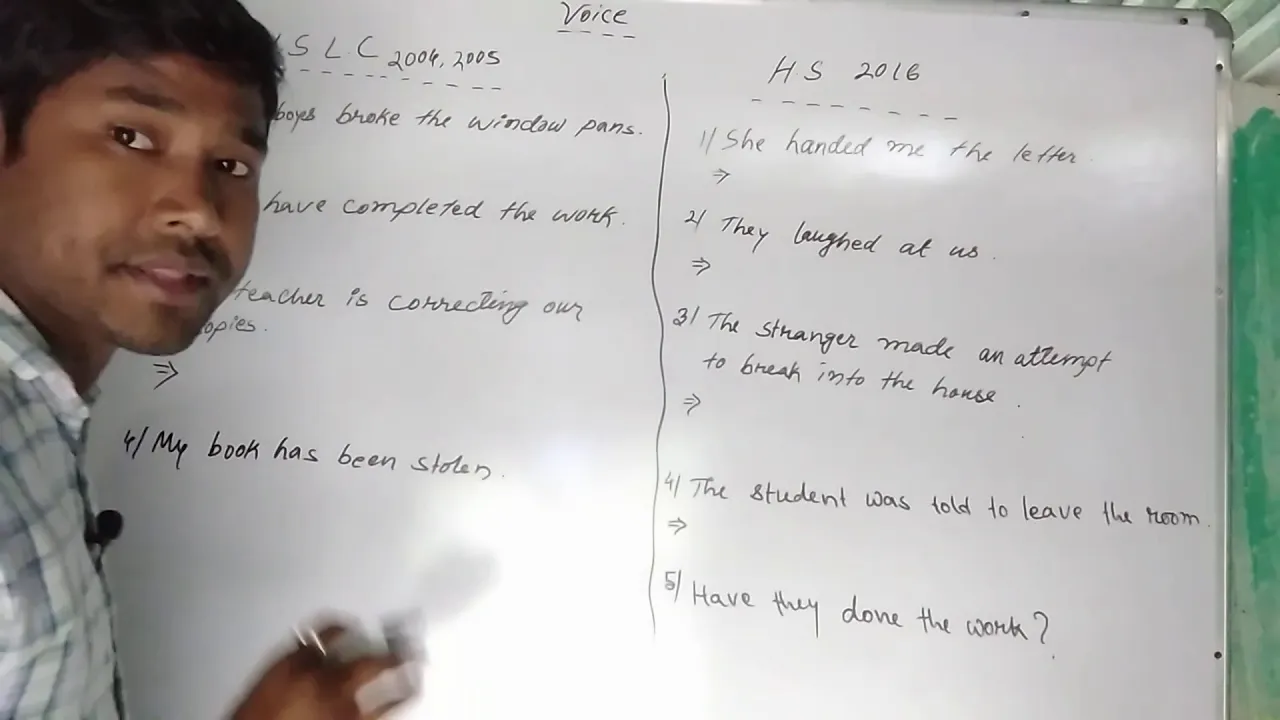 Voice
S L C 2004, 2005
boyes broke the window pans.
have completed the work.
teacher is correcting our
opies.
⇒
4/ My book has been stolen.
H S 2016
1/ She handed me the letter.
⇒
2/ They laughed at us.
⇒
3/ The stranger made an attempt
to break into the house.
⇒
4/ The student was told to leave the room.
⇒
5/ Have they done the work?